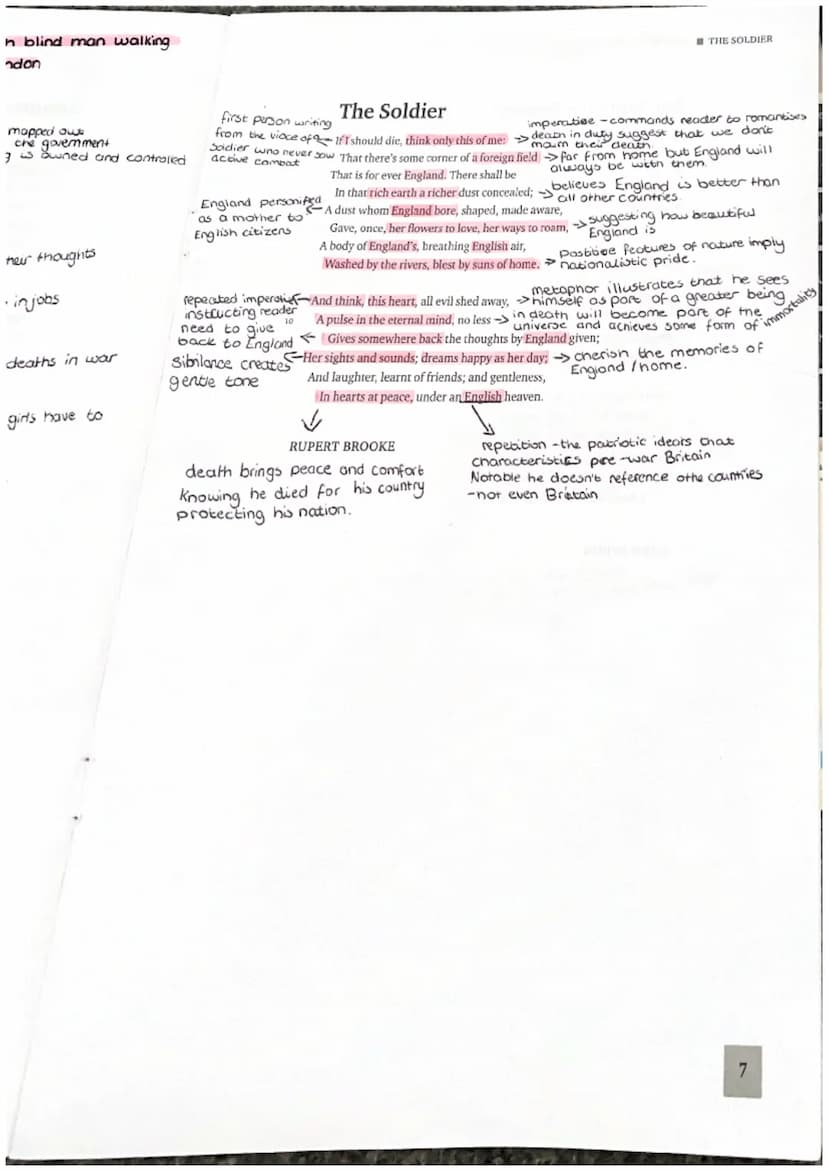 n blind man walking
ndon
THE SOLDIER
mapped out
the government
g is owned and controlled
their thoughts
in jobs
deaths in war
girls have to
The Soldier
first person writing
from the vioce of a
Soldier who never saw
active combat
England personified
as a mother to
English citizens
repeated imperative
instructing reader
need to give
back to England
sibilance creates
gentle tone
If I should die, think only this of me:
That there's some corner of a foreign field
That is for ever England. There shall be
In that rich earth a richer dust concealed;
A dust whom England bore, shaped, made aware,
Gave, once, her flowers to love, her ways to roam,
A body of England's, breathing English air,
Washed by the rivers, blest by suns of home.
And think, this heart, all evil shed away,
10
A pulse in the eternal mind, no less
Gives somewhere back the thoughts by England given;
Her sights and sounds; dreams happy as her day;
And laughter, learnt of friends; and gentleness,
In hearts at peace, under an English heaven.
RUPERT BROOKE
imperative - commands reader to romantises
death in duty suggest that we don't
mourn their death.
far from home but England will
always be with them.
believes England is better than
all other countries.
suggesting how beautiful
England is
positive features of nature imply
nationalistic pride.
metaphor illustrates that he sees
himself as part of a greater being
in death will become part of the
universe and achieves some form of immortality
cherish the memories of
England / home.
death brings peace and comfort
knowing he died for his country
protecting his nation.
repetition - the patriotic ideals that
characteristics pre-war Britain
Notable he doesn't reference othe countries
- not even Britain
7